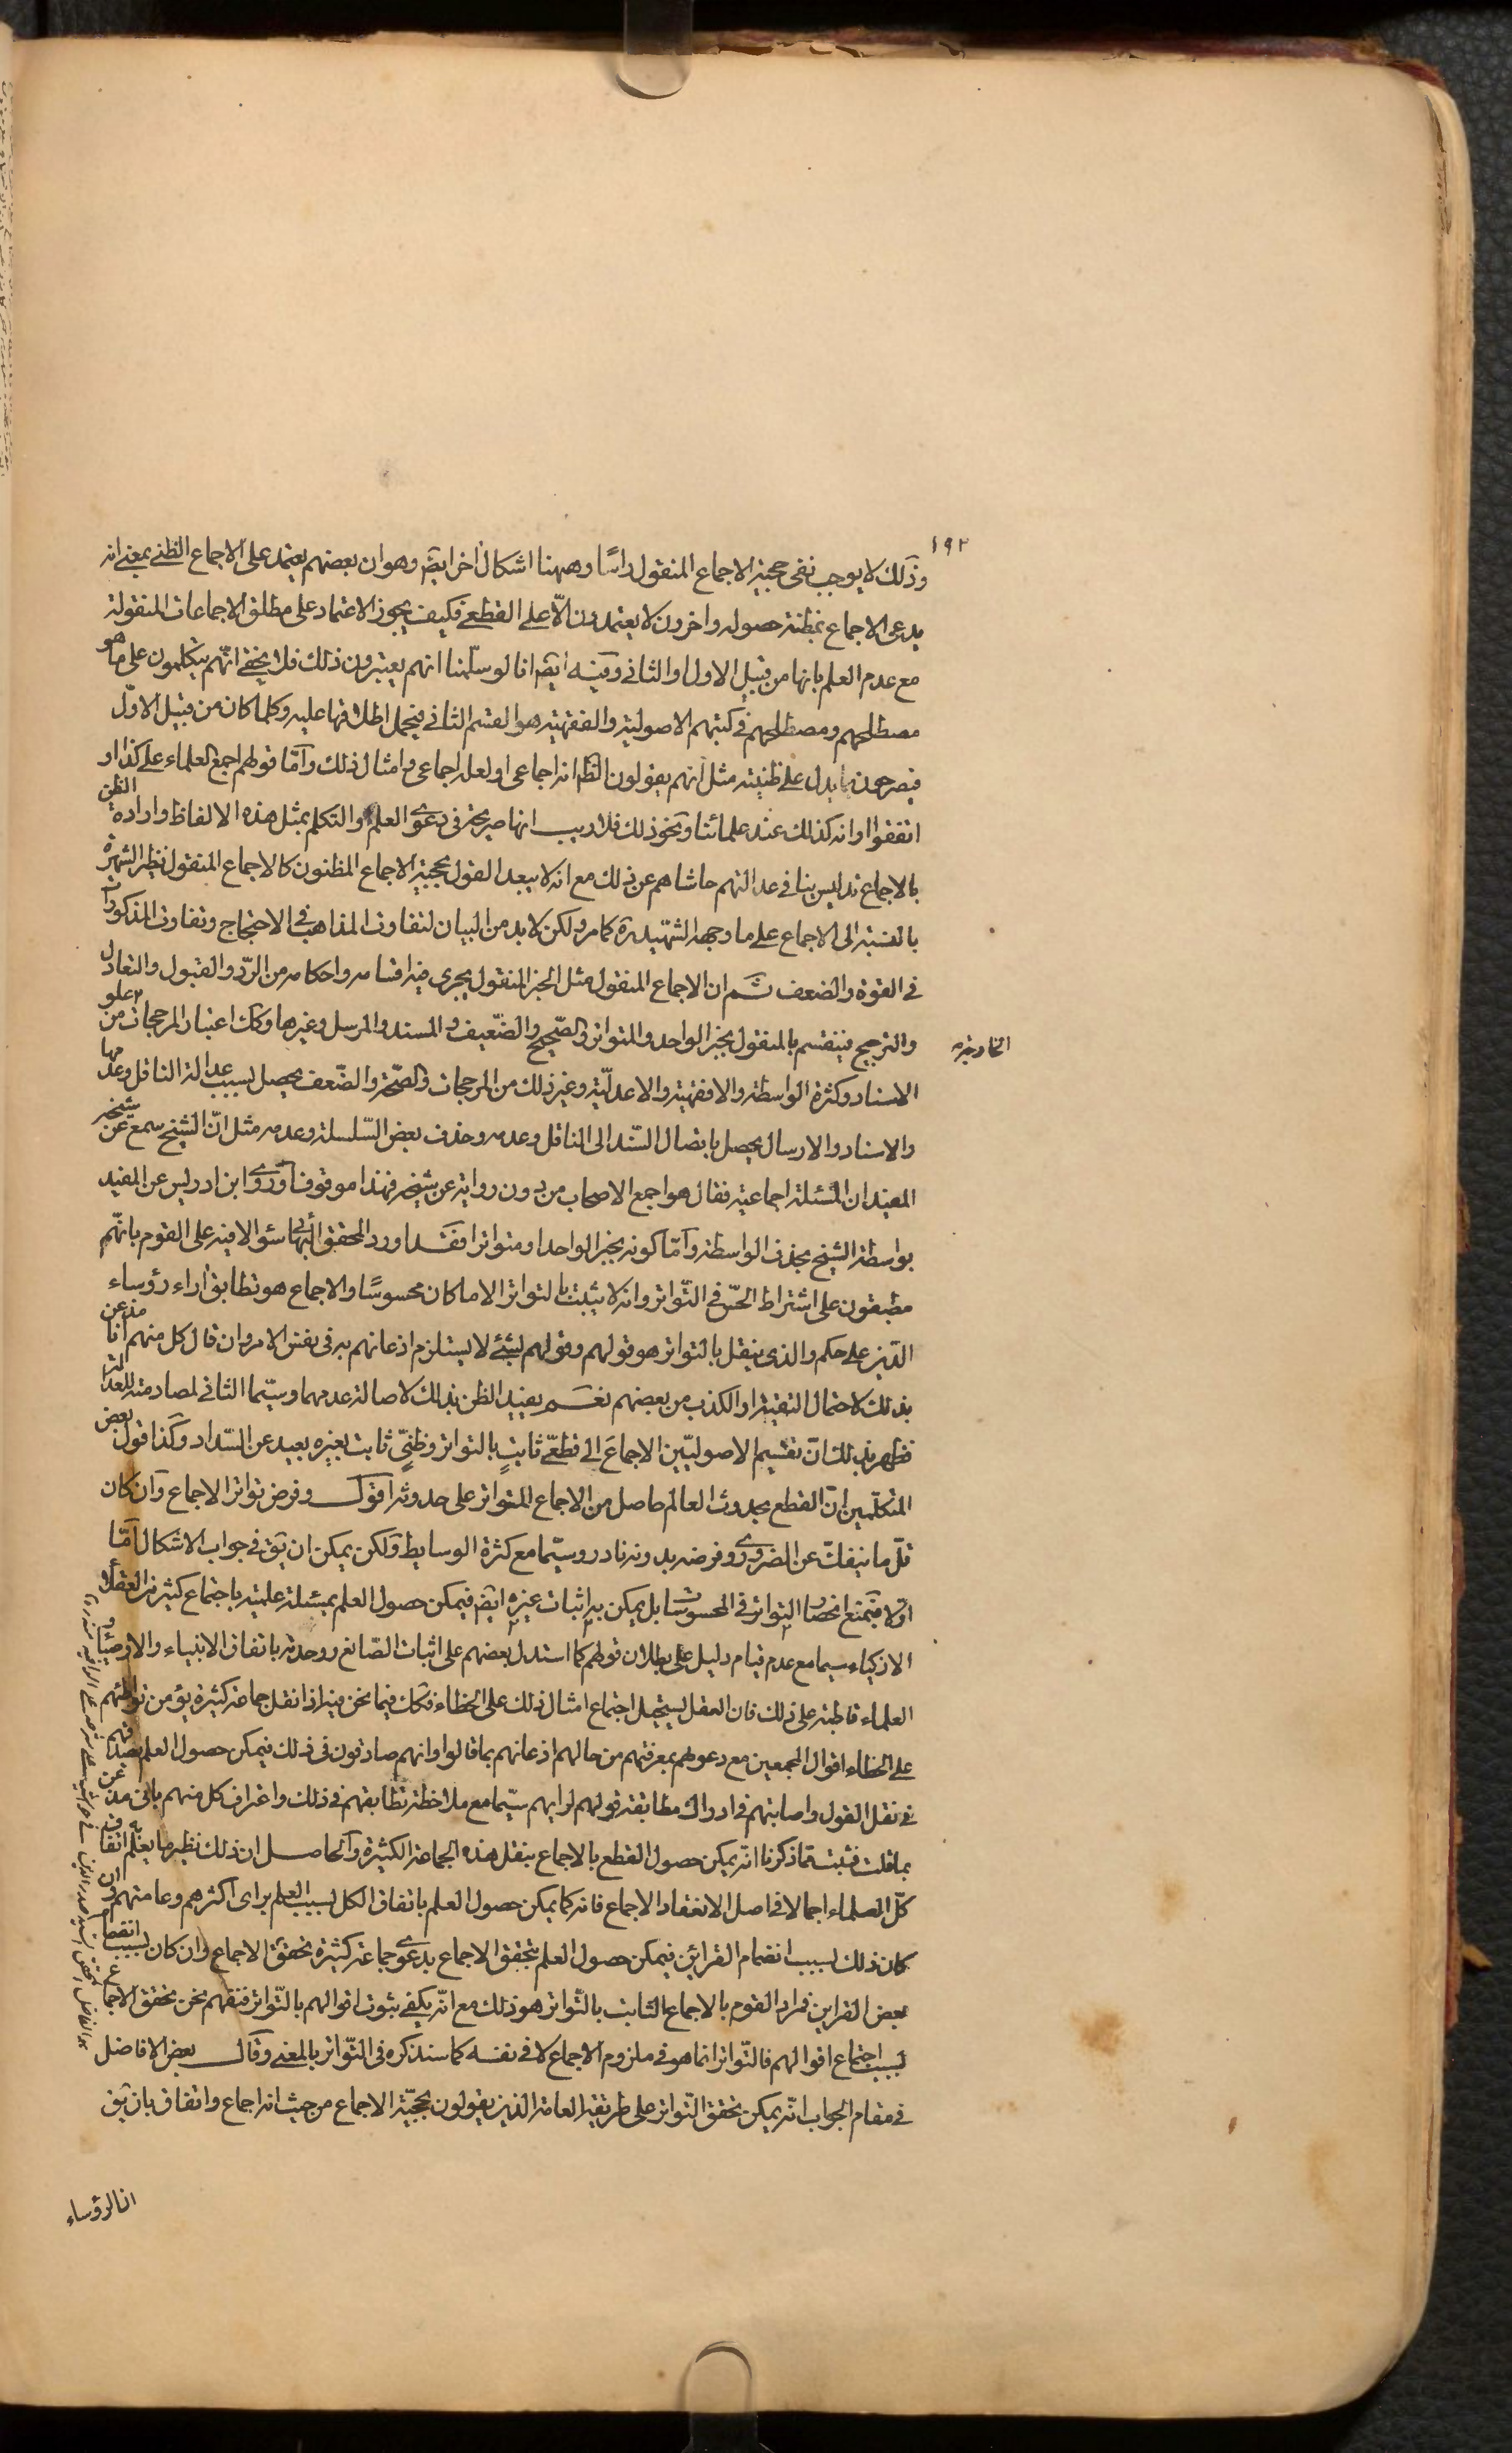 ١٩٢
وذلك لا يوجب نفى حجية الاجماع المنقول راسًا وههنا اشكال اخر ايضً وهو ان بعضهم يعتمد على الاجماع الظنى بمعنى انه
يدعى الاجماع بمظنة حصوله واخرون لا يعتمدون الّا على القطعى فكيف يجوز الاعتماد على مطلق الاجماعات المنقولة
مع عدم العلم بانها من قبيل الاول او الثانى وفيه ايضً انا لو سلّمنا انهم يعتبرون ذلك فلا يخفى انّهم يتكلمون على ما هو
مصطلحهم ومصطلحهم فى كتبهم الاصولية والفقهية هو القسم الثانى فيحمل اطلاقها عليه وكلما كان من قبيل الاوّل
فيصرحون بما يدل على ظنيته مثل انهم يقولون الظ انه اجماعى او لعله اجماعى وامثال ذلك وامّا قولهم اجمع العلماء على كذا او
اتفقوا او انه كذلك عند علمائنا ونحو ذلك فلا ريب انها صريحة فى دعوى العلم والتكلم بمثل هذه الالفاظ وارادة الظن
بالاجماع تدليس ينافى عدالتهم حاشاهم عن ذلك مع انه لا يبعد القول بحجية الاجماع المظنون كالاجماع المنقول نظير الشهرة
بالنسبة الى الاجماع على ما وجهه الشهيد ره كما مر ولكن لا بد من البيان لتفاوت المذاهب فى الاحتجاج وتفاوت المذكورات
فى القوة والضعف ثم ان الاجماع المنقول مثل الخبر المنقول يجرى فيه اقسامه واحكامه من الردّ والقبول والتعادل
والترجيح فينقسم بالمنقول بخبر الواحد والمتواتر والصّحيح والضّعيف والمسند والمرسل وغيرها وكك اعتبار المرجحات من علو
الاسناد وكثرة الواسطة والافقهية والاعدليّة وغير ذلك من المرجحات والصّحة والضّعف يحصل بسبب عدالة الناقل وعدمها
والاسناد والارسال يحصل باتصال السّند الى الناقل وعدمه وحذف بعض السّلسلة وعدمه مثل انّ الشيخ سمع عن شيخه
المفيد ان المسئلة اجماعية فقال هو اجمع الاصحاب من دون رواية عن شيخه فهذا موقوف او روى ابن ادريس عن المفيد
بواسطة الشيخ بحذف الواسطة وامّا كونه بخبر الواحد او متواترا فقد اورد المحقق البهائى سئوالا فيه على القوم بانّهم
مطبقون على اشتراط الحسّ فى التّواتر وانه لا يثبت بالتواتر الا ما كان محسوسًا والاجماع هو تطابق اراء رؤساء
الدّين على حكم والذى ينقل بالتواتر هو قولهم وقولهم بشئ لا يستلزم اذعانهم به فى نفس الامر وان قال كل منهم انا مذعن
بذلك لاحتمال التقية او الكذب من بعضهم نعم يفيد الظن بذلك لاصالة عدمهما وسيّما الثانى لمصادمته للعدالة
فظهر بذلك انّ تقسيم الاصوليّين الاجماعَ الى قطعىّ ثابتٍ بالتواتر وظنىّ ثابت بغيره بعيد عن السّداد وكذا قول بعض
المتكلّمين انّ القطع بحدوث العالم حاصل من الاجماع المتواتر على حدوثه اقول وفرض تواتر الاجماع وان كان
قلّ ما ينفكّ عن الضرورى وفرضه بدونه نادر وسيّما مع كثرة الوسايط ولكن يمكن ان يق فى جواب الاشكال امّا
اولا فبمنع انحصار التواتر فى المحسوسات بل يمكن به اثبات غيره ايضً فيمكن حصول العلم بمسئلة علمية باجتماع كثير من العقلاء
الازكياء سيما مع عدم قيام دليل على بطلان قولهم كما استدل بعضهم على اثبات الصّانع ووحدته باتفاق الانبياء والاوصياء و
العلماء قاطبة على ذلك فان العقل يستحيل اجتماع امثال ذلك على الخطاء فكك فيما نحن فيه اذا نقل جماعة كثيرة يؤمن تواطئهم
على الخطاء اقوال المجمعين مع دعوىهم بمعرفتهم من حالهم اذعانهم بما قالوا وانهم صادقون فى ذلك فيمكن حصول العلم بصدقهم
فى نقل القول واصابتهم فى ادراك مطابقة قولهم لرايهم سيّما مع ملاحظة تطابقهم فى ذلك واعتراف كل منهم بانى مذعن
بما قلت فثبت مما ذكرنا انّه يمكن حصول القطع بالاجماع بنقل هذه الجماعة الكثيرة والحاصل ان ذلك نظير ما يعلم به اتفاق
كلّ العلماء اجمالا فى اصل الانعقاد الاجماع فانه كما يمكن حصول العلم باتفاق الكل بسبب العلم براى اكثرهم وعامتهم وان
كان ذلك بسبب انضمام القرائن فيمكن حصول العلم بتحقق الاجماع بدعوى جماعة كثيرة تحقق الاجماع وان كان بسبب انضمام
بعض القراين فمراد القوم بالاجماع الثابت بالتّواتر هو ذلك مع انّه يكفى ثبوت اقوالهم بالتّواتر فنفهم نحن تحقق الاجماع
بسبب اجتماع اقوالهم فالتّواتر انما هو فى ملزوم الاجماع لا فى نفسه كما سنذكره فى التّواتر بالمعنى وقال بعض الافاضل
فى مقام الجواب انّه يمكن تحقق التّواتر على طريقة العامة الذين يقولون بحجيّة الاجماع من حيث انه اجماع واتفاق بان يق
انا لرؤساء